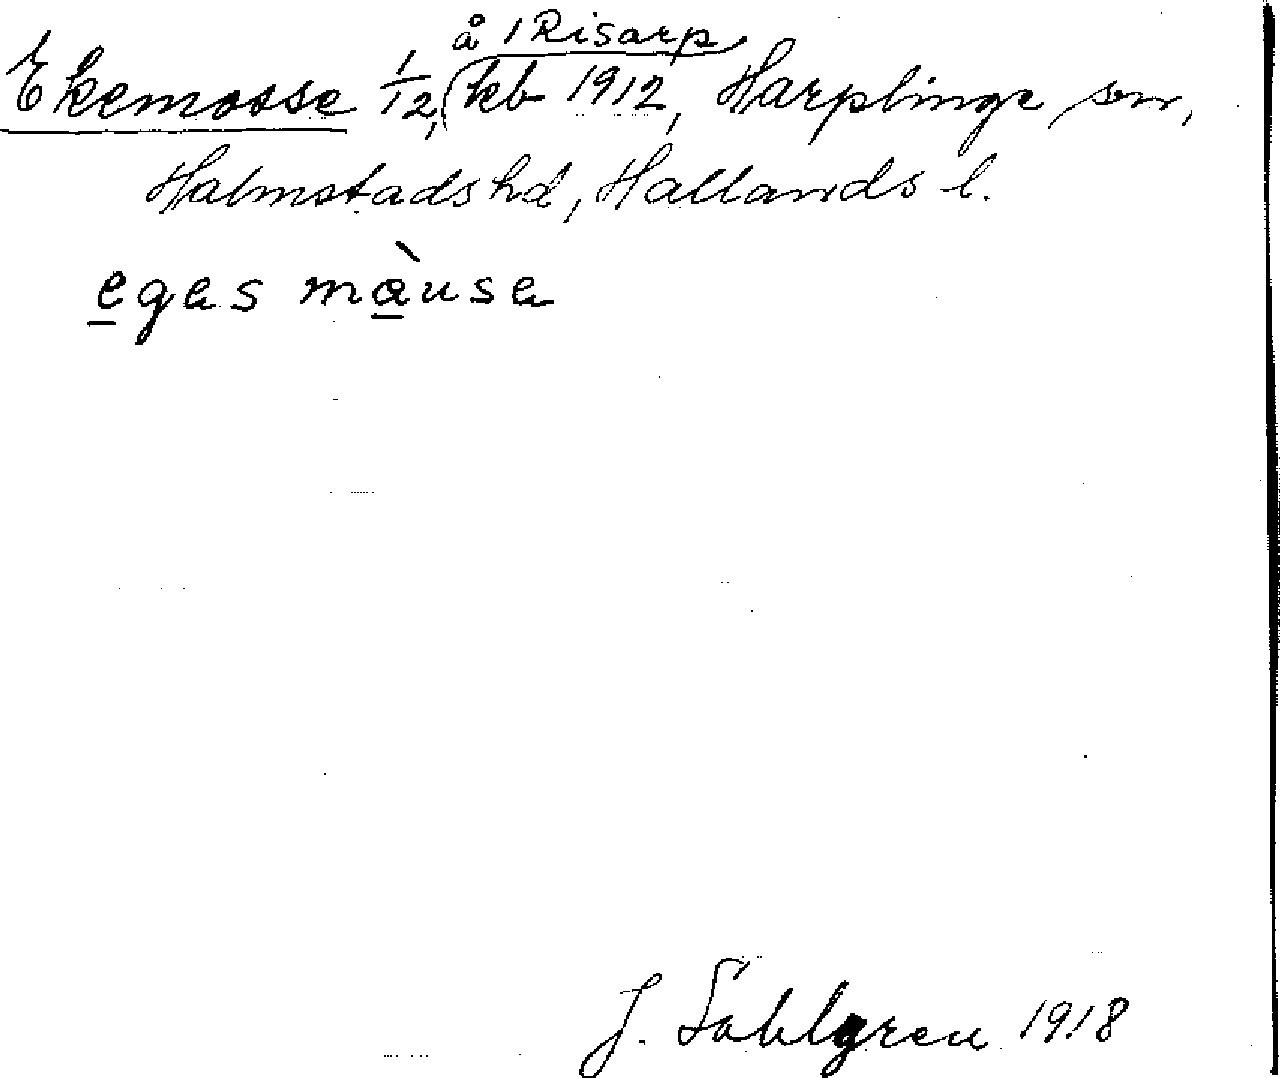 å 1 Risarp
Ekemosse 1/12, kb 1912, Harplinge sn,
Halmstads hd, Hallands l.
egas màusa
J. Sahlgren 1918